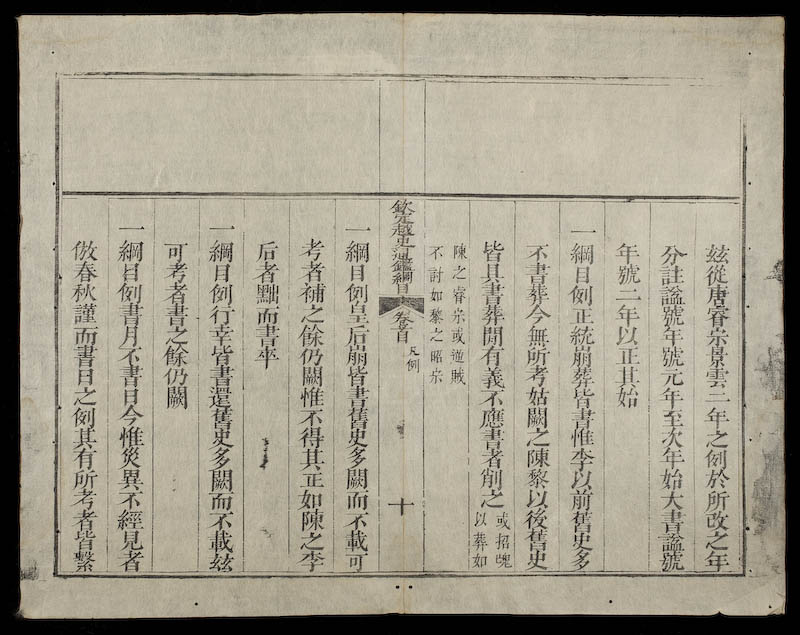 玆從唐睿宗景雲二年之例於所改之年
分註謚號年號元年至次年始大書謚號
年號二年以正其始
一綱目例正統崩葬皆書惟李以前舊史多
不書葬今無所考姑闕之陳黎以後舊史
皆具書葬間有義不應書者削之或招魄以葬如
陳之睿宗或遊賊
不討如黎之昭宗
欽定越史通鑑綱目 卷首 凡例 十
一綱目例皇后崩皆書舊史多闕而不載可
考者補之餘仍闕惟不得其正如陳之李
后者黜而書卒
一綱目例行幸皆書還舊史多闕而不載玆
可考者書之餘仍闕
一綱目例書月不書日今惟災異不經見者
倣春秋謹而書日之例其有所考者皆繫